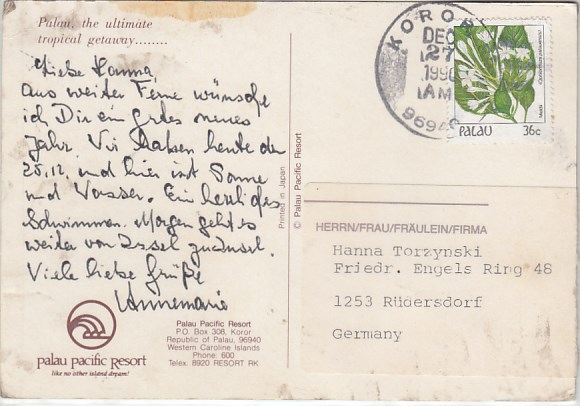 Palau, the ultimate
tropical getaway........
Liebe Hanna,
aus weiter Ferne wünsche
ich Dir ein gutes neues
Jahr. Wir haben heute den
25.12. und hier ist Sonne
und Wasser. Ein
Schwimmen. Morgen geht es
weiter von Insel
Viele liebe Grüße
Annemarie
palau pacific resort
like no other island dream!
Palau Pacific Resort
P.O. Box 308, Koror
Republic of Palau, 96940
Western Caroline Islands
Phone: 600
Telex: 8920 RESORT RK
Printed in Japan
© Palau Pacific Resort
KOROR
DEC
27
1990
AM
96940
PALAU 36c
HERRN/FRAU/FRÄULEIN/FIRMA
Hanna Torzynski
Friedr. Engels Ring 48
1253 Rüdersdorf
Germany